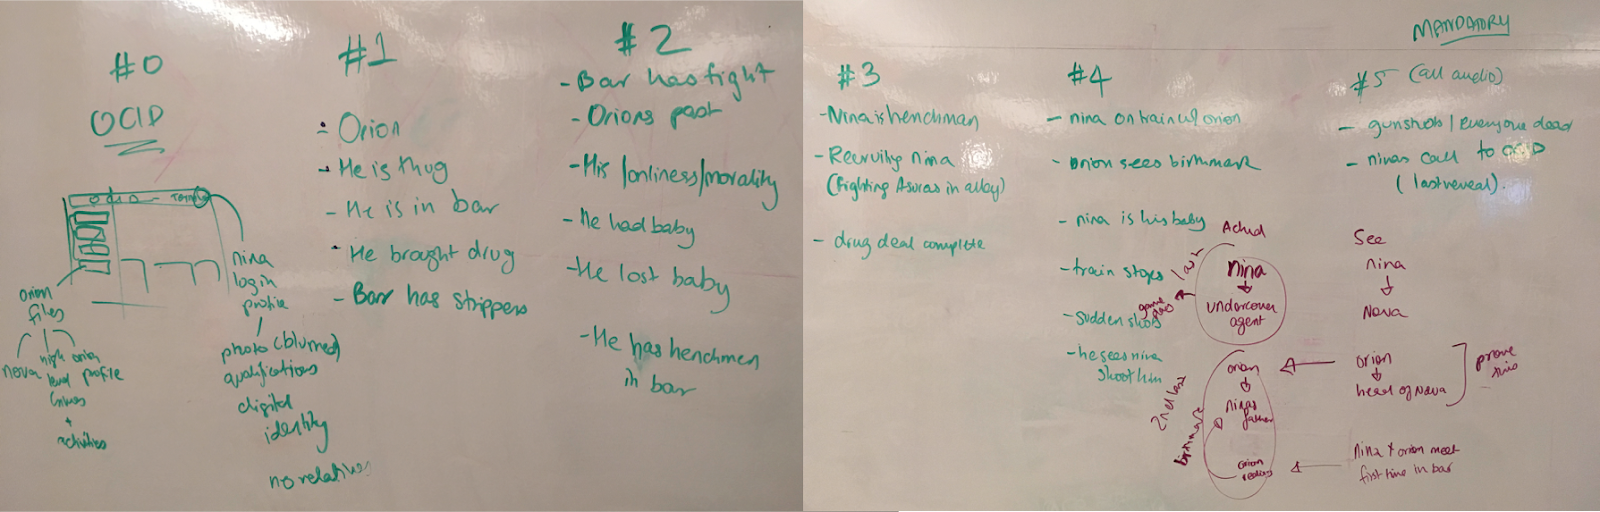 #0
OCID
orion
files
nova
high
level
crimes
+
activities
orion
profile
nina
login
profile
photo (blurred)
qualifications
digital
identity
no relatives
#1
- Orion
- He is thug
- He is in bar
- He brought drug
- Bar has strippers
#2
- Bar has fight
- Orions past
- His lonliness/morality
- He had baby
- He lost baby
- He has henchmen
in bar
#3
- Nina is henchman
- Recruiting nina
(Fighting Asuras in alley)
- drug deal complete
#4
- nina on train w/ orion
- orion sees birthmark
- nina is his baby
- train stops
- sudden shots
- he sees nina
shoot him
MANDATORY
#5 (all audio)
- gunshots / everyone dead
- ninas call to OCID
(last reveal).
Actual
last
nina
undercover
agent
See
nina
Nova
orion
ninas
father
2nd last
birthmark
orion
orion
head of Nova
prove
this
Nina + orion meet
first time in bar